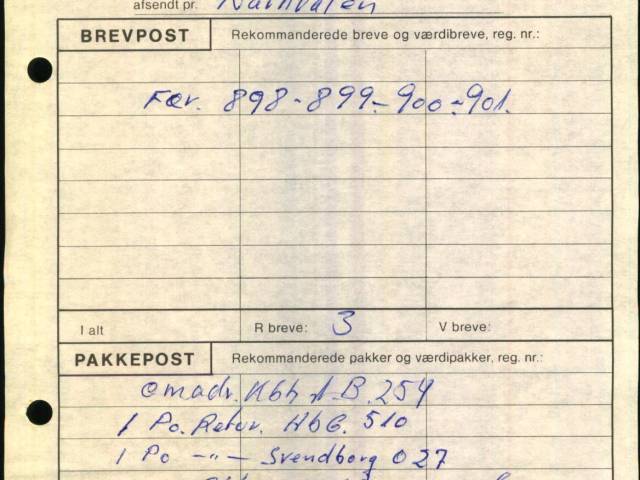 afsendt pr. Narhvalen
BREVPOST Rekommanderede breve og værdibreve, reg. nr.:
Fær. 898 - 899 - 900 - 901.
I alt R breve: 3 V breve:
PAKKEPOST Rekommanderede pakker og værdipakker, reg. nr.:
omadr. Kbh A-B. 254
1 Po. Retur. HbG. 510
1 Po -"- Svendborg 027